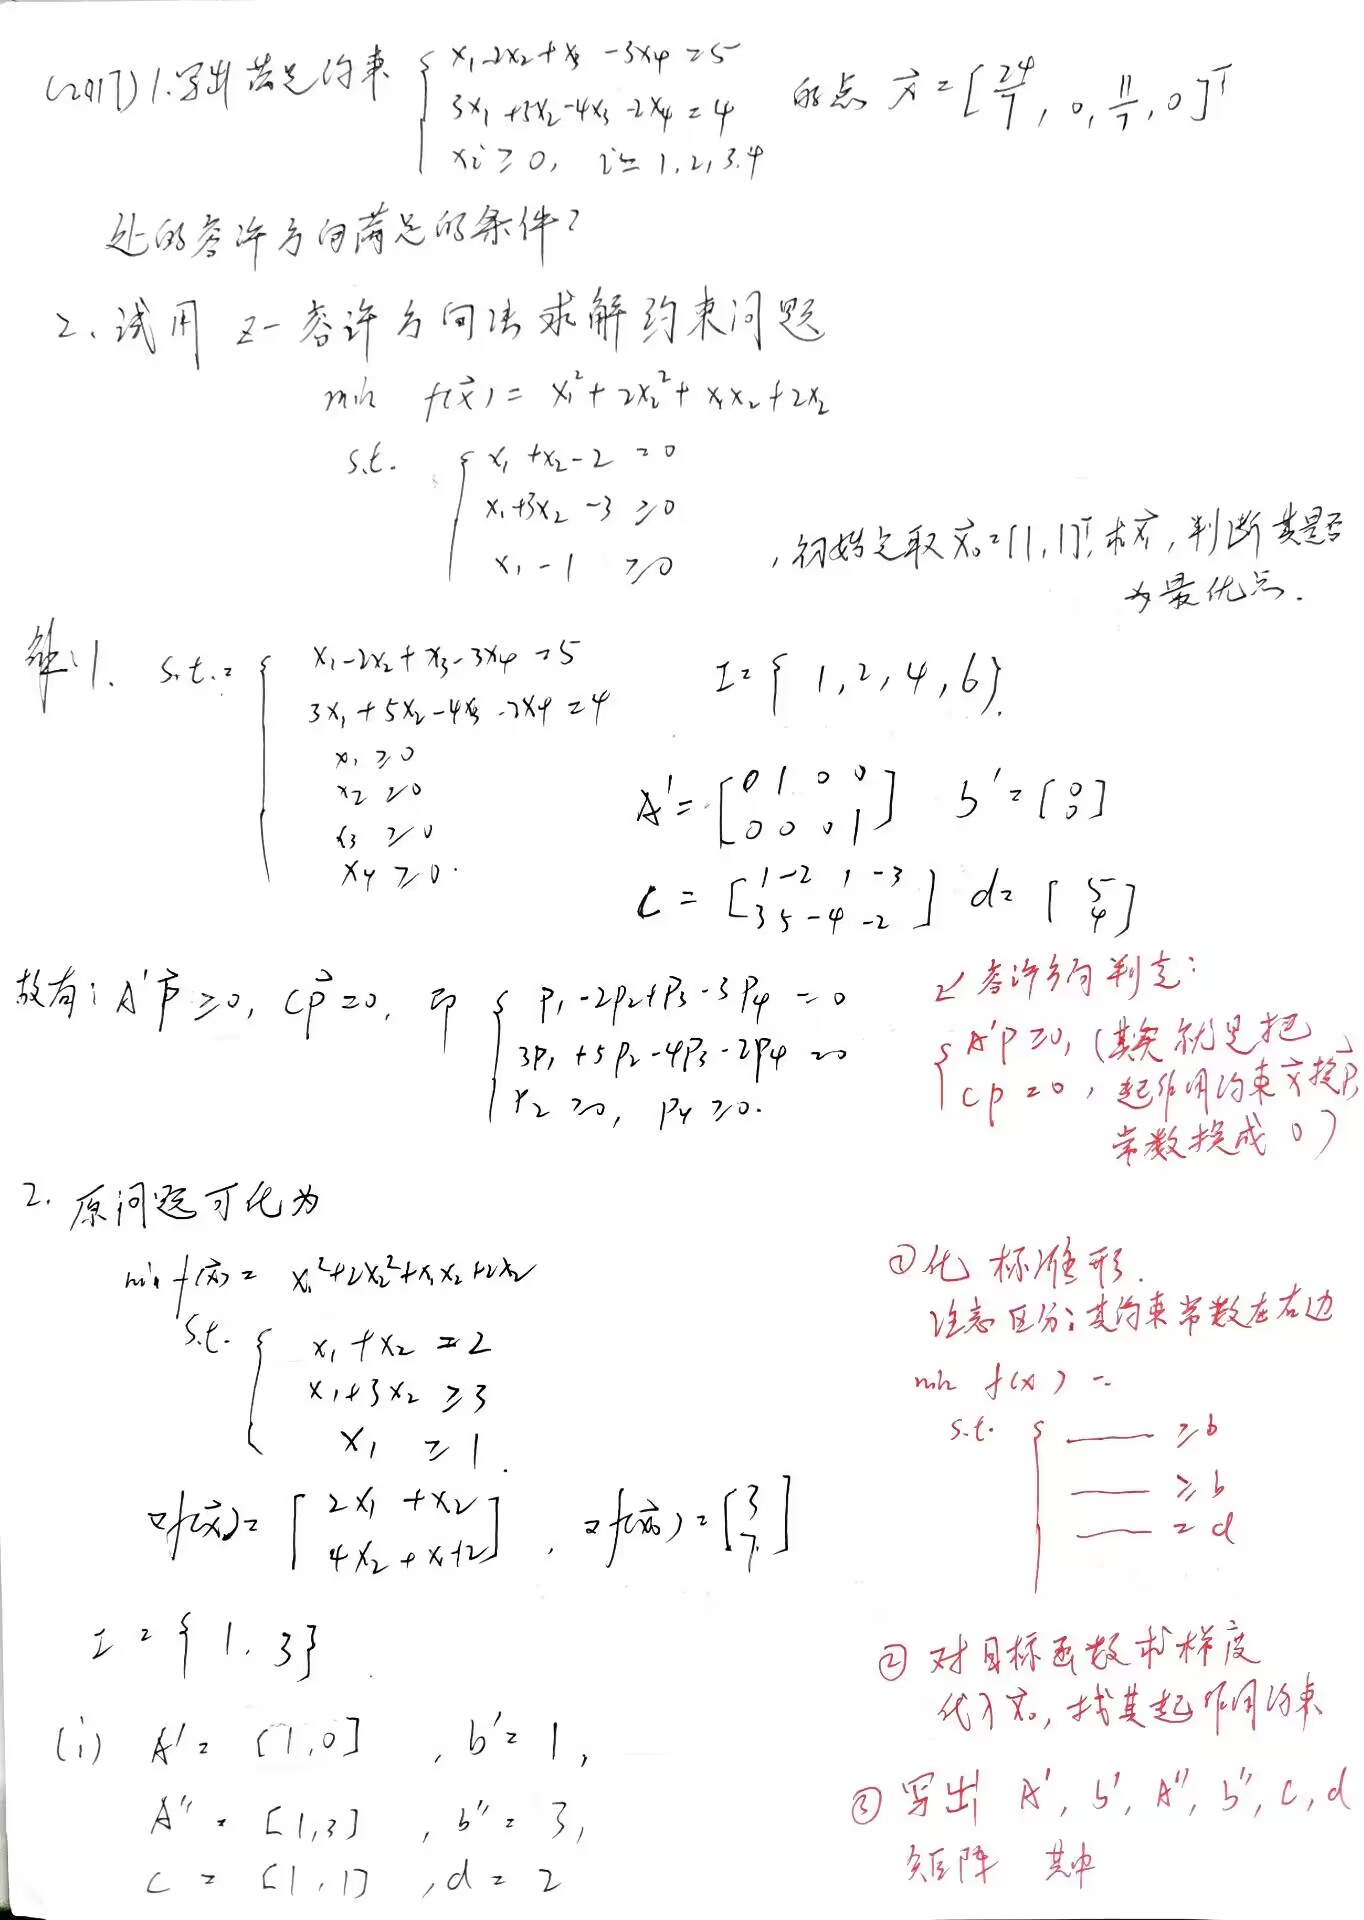 (2017) 1.写出满足约束 { x₁-2x₂+x₃-3x₄=5
3x₁+5x₂-4x₃-2x₄=4
xi≥0, i=1,2,3,4
的点 x⃗=[24/7, 0, 11/7, 0]ᵀ
处的容许方向满足的条件?
2、试用 Z-容许方向法求解约束问题
min f(x⃗)= x₁²+2x₂²+x₁x₂+2x₂
s.t. { x₁+x₂-2=0
x₁+3x₂-3≥0
x₁-1≥0
,初始点取x⃗₀=[1,1]ᵀ,求x⃗₁,判断其是否
为最优点.
解:1. s.t.= { x₁-2x₂+x₃-3x₄=5
3x₁+5x₂-4x₃-2x₄=4
x₁≥0
x₂≥0
x₃≥0
x₄≥0.
I={1,2,4,6}.
A'=[0 1 0 0
0 0 0 1] b'=[0
0]
C=[1 -2 1 -3
3 5 -4 -2] d=[5
4]
故有: A'p⃗≥0, Cp⃗=0, 即 { p₁-2p₂+p₃-3p₄=0
3p₁+5p₂-4p₃-2p₄=0
p₂≥0, p₄≥0.
容许方向判定:
{ A'p≥0, (其实就是把
Cp=0, 起作用约束x⃗换p⃗,
常数换成0)
2. 原问题可化为
min f(x⃗)= x₁²+2x₂²+x₁x₂+2x₂
s.t. { x₁+x₂=2
x₁+3x₂≥3
x₁≥1.
∇f(x⃗)=[2x₁+x₂
4x₂+x₁+2], ∇f(x⃗₀)=[3
7]
I={1.3}.
(i) A'=[1,0], b'=1,
A''=[1,3], b''=3,
C=[1,1], d=2
①化标准形.
注意区分:其约束常数在右边
min f(x)=
s.t. { —— ≥b
—— ≥b
—— =d
② 对目标函数求梯度
代入x⃗₀,找其起作用约束
③ 写出 A', b', A'', b'', C, d
矩阵 其中